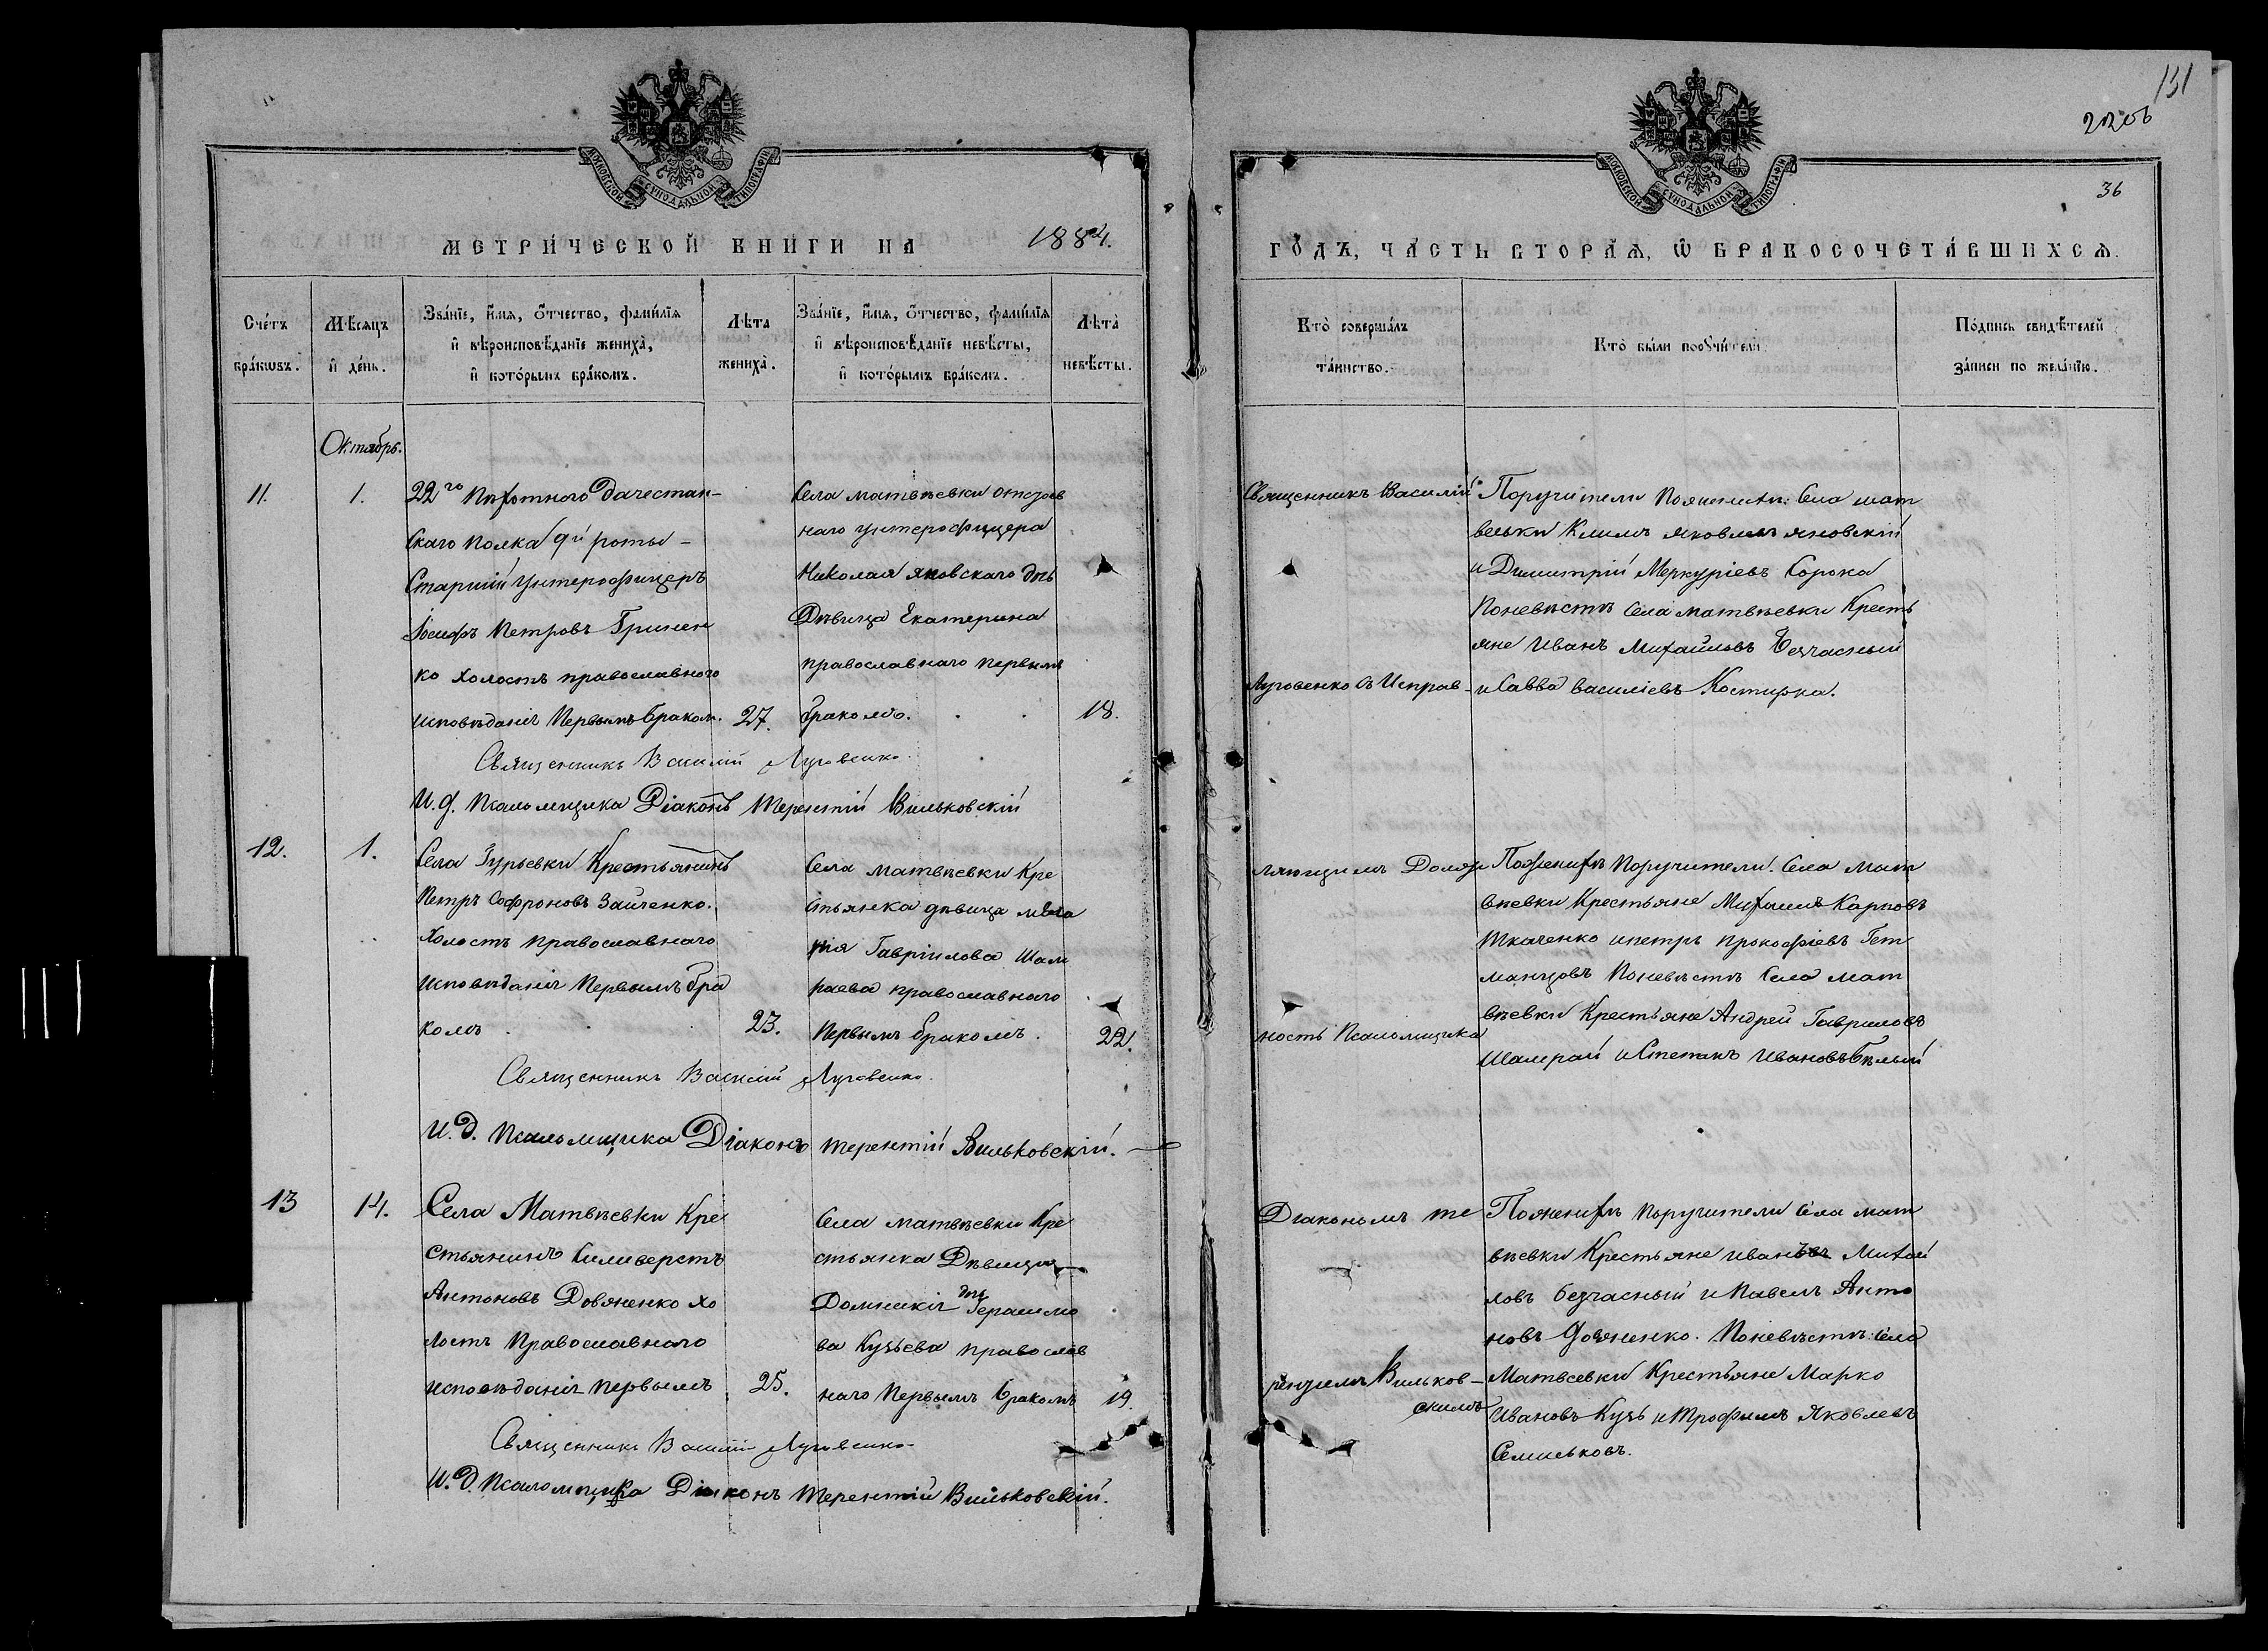 131
220об
36
МОСКОВСКОЙ СѴНОДАЛЬНОЙ ТИПОГРАФІИ
МОСКОВСКОЙ СѴНОДАЛЬНОЙ ТИПОГРАФІИ
МЕТРИ́ЧЕСКОЙ КНИГИ НА 1884.
ГО́ДЪ, ЧА́СТЬ ВТОРА́Ѧ, Ѡ҆ БРАКОСОЧЕТА́ВШИХСѦ.
Сче́тъ бра́кѡвъ.
Мѣ́сѧцъ и҆ де́нь.
Зва́нїе, и҆́мѧ, ѻ҆́тчество, фами́лїѧ и҆ вѣроисповѣ́данїе жениха̀, и҆ кото́рымъ бра́комъ.
Лѣ́та жениха̀.
Зва́нїе, и҆́мѧ, ѻ҆́тчество, фами́лїѧ и҆ вѣроисповѣ́данїе невѣ́сты, и҆ кото́рымъ бра́комъ.
Лѣ́та невѣ́сты.
Кто̀ соверша́лъ та́инство.
Кто̀ бы́ли порꙋчи́тели.
По́дпись свидѣ́телей за́писи по жела́нїю.
Октябрь.
11.
1.
22го Пѣхотнаго Дагестан-
скаго полка 9й роты -
Старшій унтерофицеръ
Іосифъ Петровъ Гринен
ко холостъ православнаго
исповѣданія Первымъ бракомъ.
27.
Села Матвѣевки отстав
наго унтерофицера
Николая Яновскаго дочь
Дѣвица Екатерина
православнаго первымъ
бракомъ.
18.
Священникъ Василій
Луговенко съ Исправ-
Поручители По женихѣ: Села Мат
веевки Климъ Яковлевъ Яновскій
и Димитрій Меркуріевъ Сорока
По невѣстѣ Села Матвѣевки Кресть
яне Иванъ Михайловъ Безчасный
и Савва Василіевъ Костирка.
Священникъ Василій Луговенко.
И. д. Псаломщика Діаконъ Терентій Вильковскій
12.
1.
Села Гурьевки Крестьянинъ
Петръ Софроновъ Зайченко.
Холостъ православнаго
исповѣданія Первымъ бра
комъ
23.
Села Матвѣевки Кре
стьянка дѣвица
рія Гавріилова Шам
раева православнаго
Первымъ бракомъ.
22.
ляющимъ Долж
ность Псаломщика
По женихѣ Поручители: Села Мат
вѣевки Крестьяне Михаилъ Карповъ
Ткаченко и Петръ Прокофіевъ Гет
манцовъ По невѣстѣ Села Мат
вѣевки Крестьяне Андрей Гавриловъ
Шамрай и Степанъ Ивановъ Бѣлый
Священникъ Василій Луговенко.
И. Д. Псаломщика Діаконъ Терентій Вильковскій.
13
14.
Села Матвѣевки Кре
стьянинъ Силиверстъ
Антоновъ Довженко хо
лостъ Православнаго
исповѣданія первымъ
25.
Села Матвѣевки Кре
стьянка Дѣвица
Домникія Герасимо
ва Кузьева православ
наго Первымъ бракомъ
19.
Діакономъ Те
рентіемъ Вильков-
скимъ
По женихѣ Поручители Села Мат
вѣевки Крестьяне Иванъ Михай
ловъ Безчасный и Павелъ Анто
новъ Довженко. По невѣстѣ: Села
Матвеевки Крестьяне Марко
Ивановъ Кузь и Трофимъ Яковлевъ
Семиьковъ.
Священникъ Василій Луговенко
И. Д. Псаломщика Діаконъ Терентій Вильковскій.